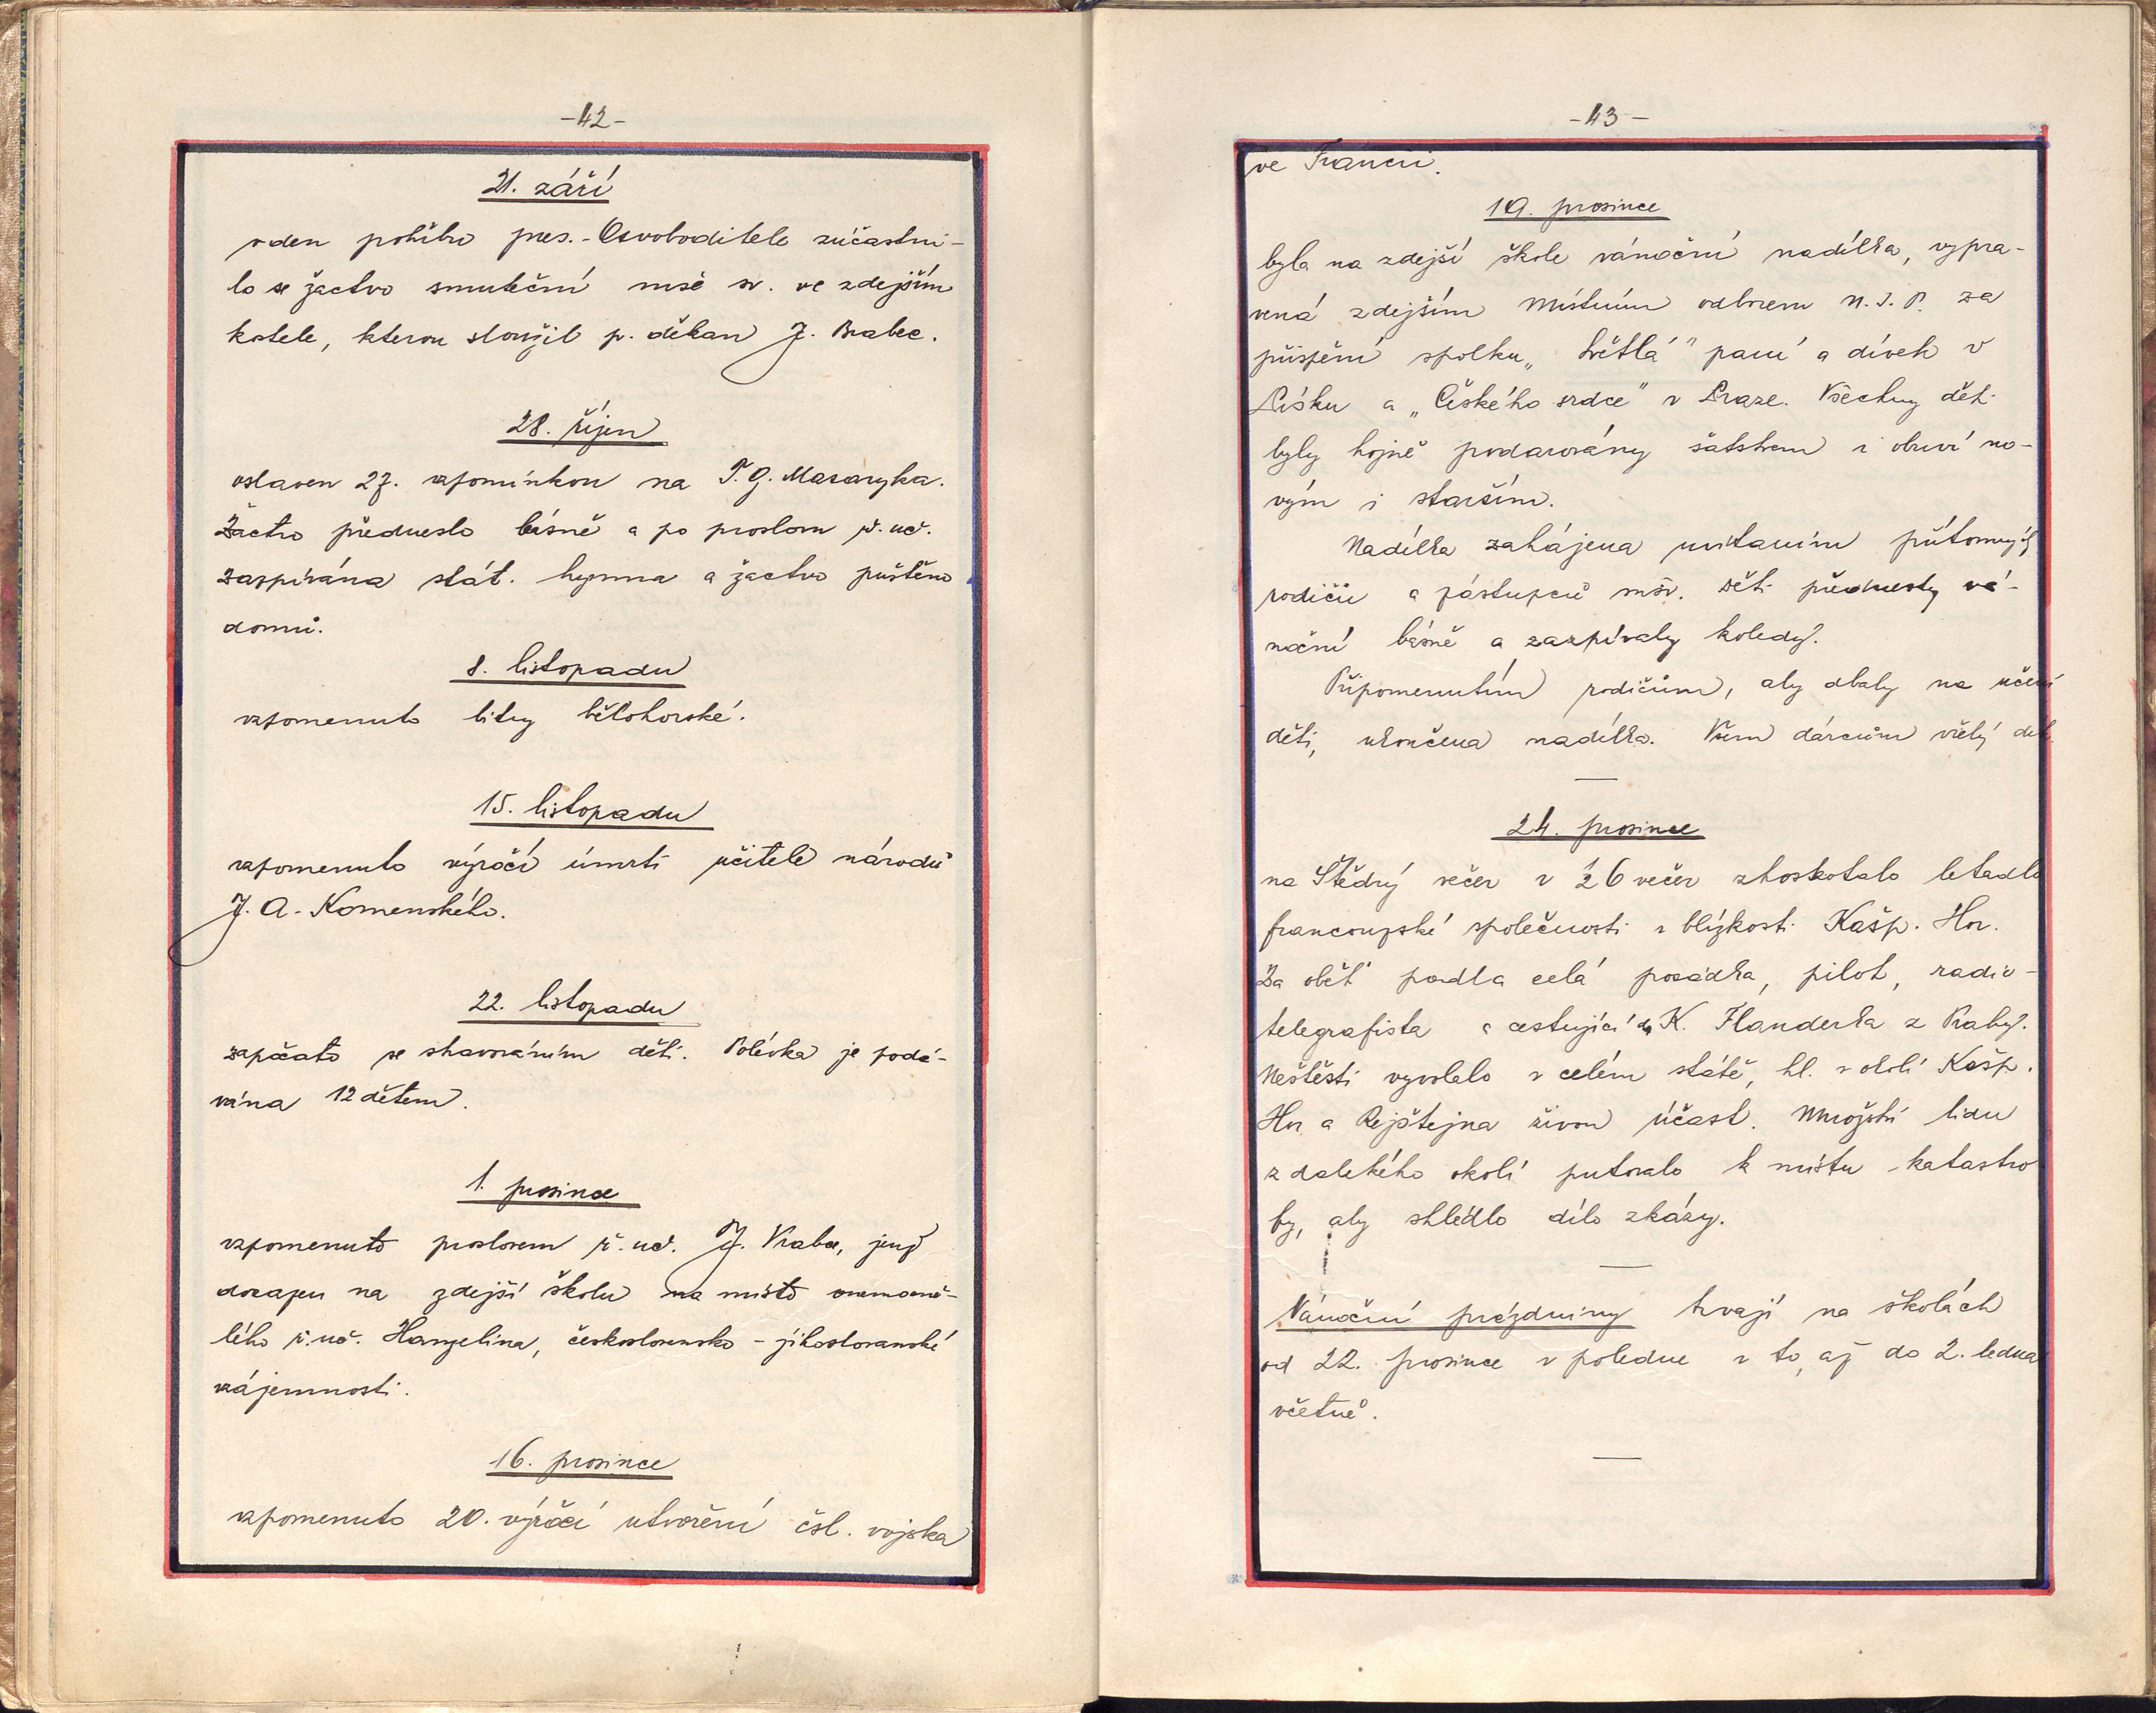 -42-
21. září
v den pohřbu pres.-Osvoboditele zúčastni-
lo se žactvo smuteční mše sv. ve zdejším
kostele, kterou sloužil p. děkan J. Brabec.
28. říjen
oslaven 27. vzpomínkou na T. G. Masaryka.
Žactvo předneslo básně a po proslovu ř. uč.
zazpívána stát. hymna a žactvo puštěno
domů.
8. listopadu
vzpomenuto bitvy bělohorské.
15. listopadu
vzpomenuto výročí úmrtí učitele národů
J. A. Komenského.
22. listopadu
započato se stravováním dětí. Polévka je podá-
vána 12 dětem.
1. prosince
vzpomenuto proslovem ř. uč. J. Vrabce, jenž
dosazen na zdejší školu na místo onemocně-
lého ř. uč. Hanzelina, československo-jihoslovanské
vzájemnosti.
16. prosince
vzpomenuto 20. výročí utvoření čsl. vojska
-43-
ve Francii.
19. prosince
byla na zdejší škole vánoční nadílka, vypra-
vená zdejším Místním odborem N. J. P. za
přispění spolku „Světlá" paní a dívek v
Písku a „Českého srdce" v Praze. Všechny děti
byly hojně podarovány šatstvem i obuví no-
vým i starším.
Nadílka zahájena uvítáním přítomných
rodičů a zástupců mšr. Děti přednesly vá-
noční básně a zazpívaly koledy.
Připomenutím rodičům, aby dbaly na učení
dětí, ukončena nadílka. Všem dárcům vřelý dík.
24. prosince
na Štědrý večer v 26 večer ztroskotalo letadlo
francouzské společnosti v blízkosti Kašp. Hor.
Za oběť padla celá posádka, pilot, radio-
telegrafista a cestující K. Flanderka z Prahy.
Neštěstí vyvolalo v celém státě, hl. v okolí Kašp.
Hor a Rejštejna živou účast. Množství lidu
z dalekého okolí putovalo k místu katastro
fy, aby shlédlo dílo zkázy.
Vánoční prázdniny trvají na školách
od 22. prosince v poledne v to, až do 2. ledna
včetně.